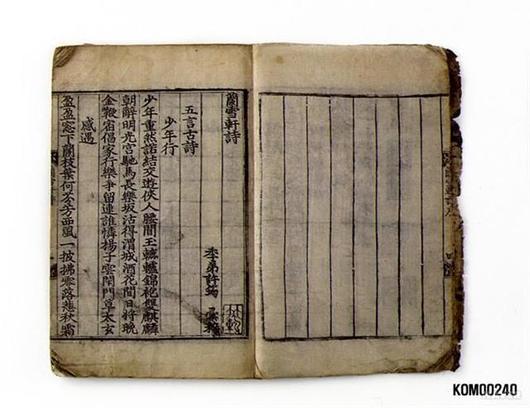 蘭雪軒詩
季弟許筠 彙粹
五言古詩
少年行
少年重然諾結交遊俠人腰間玉轆轤錦袍雙麒麟
朝辭明光宮馳馬長樂坂沽得渭城酒花間日將晚
金鞭宿倡家行樂爭留連誰憐揚子雲閉門草太玄
感遇
盈盈窓下蘭枝葉何芬芳西風一披拂零落悲秋霜
KOM00240